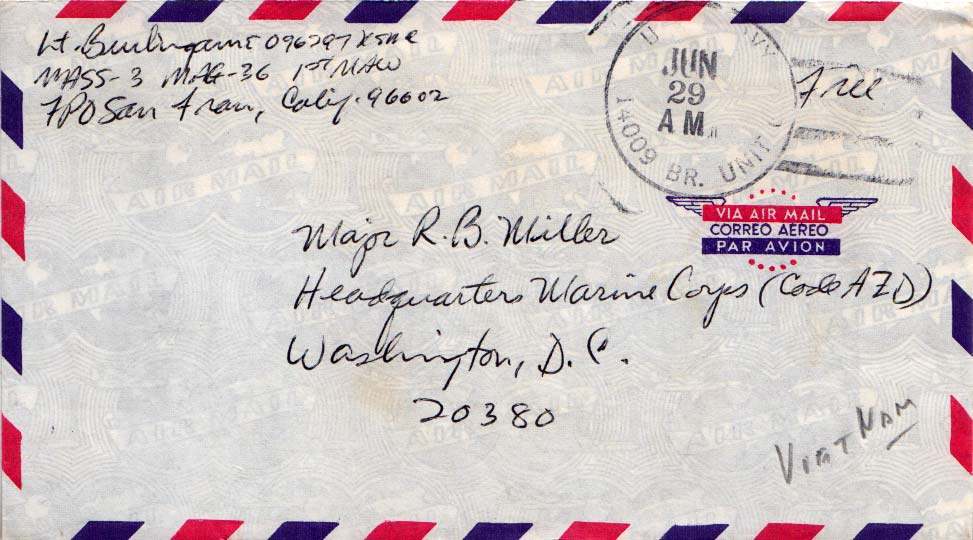 Lt. Burlingame 096297 USMC
MASS-3 MAG-36 1ST MAW
FPO San Fran, Calif. 96602
U. S. NAVY
JUN
29
AM
14009 BR. UNIT
Free
VIA AIR MAIL
CORREO AEREO
PAR AVION
Major R. B. Miller
Headquarters Marine Corps (Code AZD)
Washington, D. C.
20380
VIET NAM
AIR MAIL